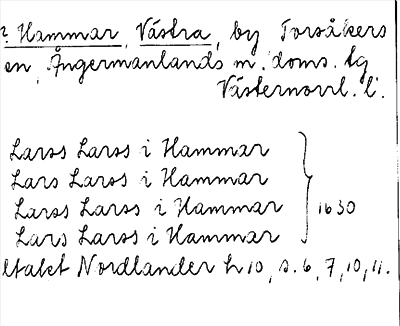 ? Hammar, Västra, by Torsåkers
en, Ångermanlands m. doms. tg
Västernorrl. l.
Larss Larss i Hammar
Lars Larss i Hammar
Larss Larss i Hammar
Lars Larss i Hammar
1630
ltalet Nordlander h 10, s. 6, 7, 10, 11.